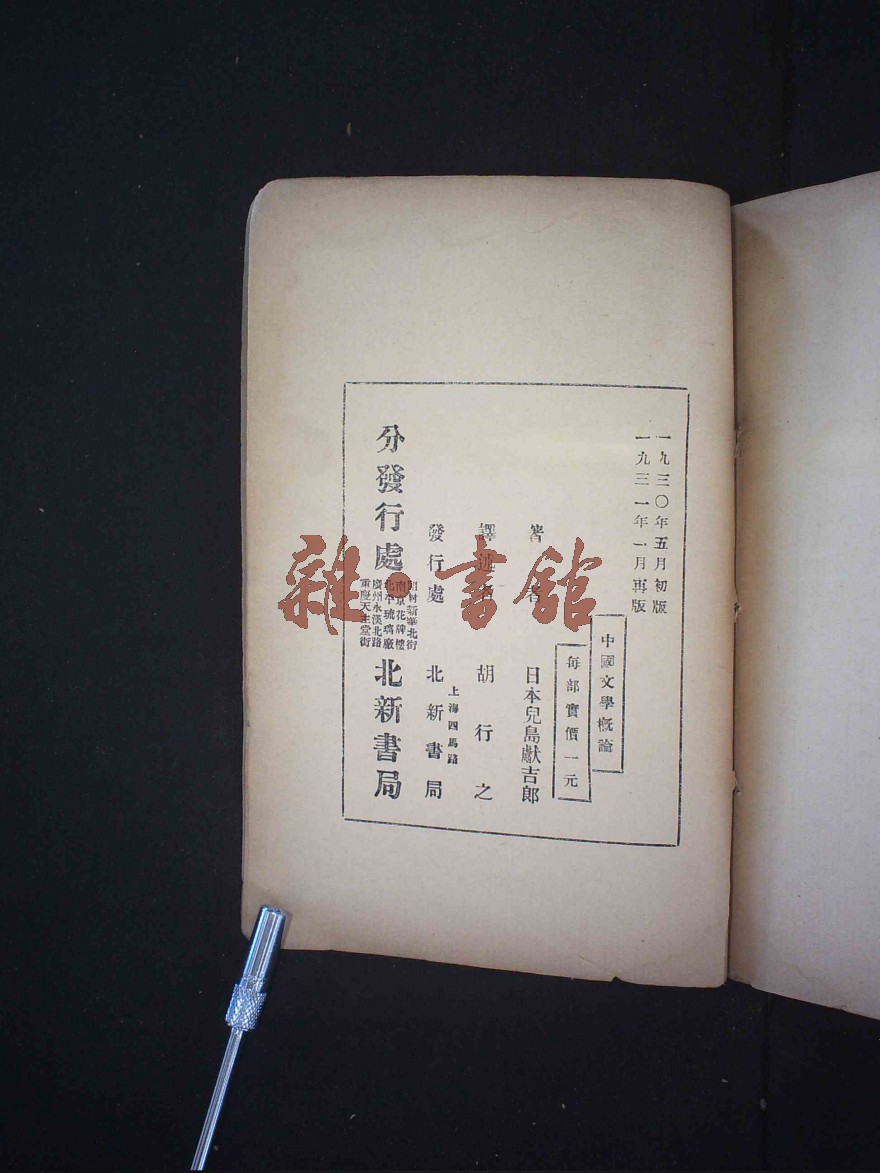 一九三〇年五月初版
一九三一年一月再版
中國文學概論
每部實價一元
著者 日本兒島獻吉郎
譯述者 胡行之
發行處 上海四馬路 北新書局
分發行處
新華北街
南京花牌樓
北平琉璃廠
廣州永漢北路
重慶天主堂街
北新書局
雜·書館